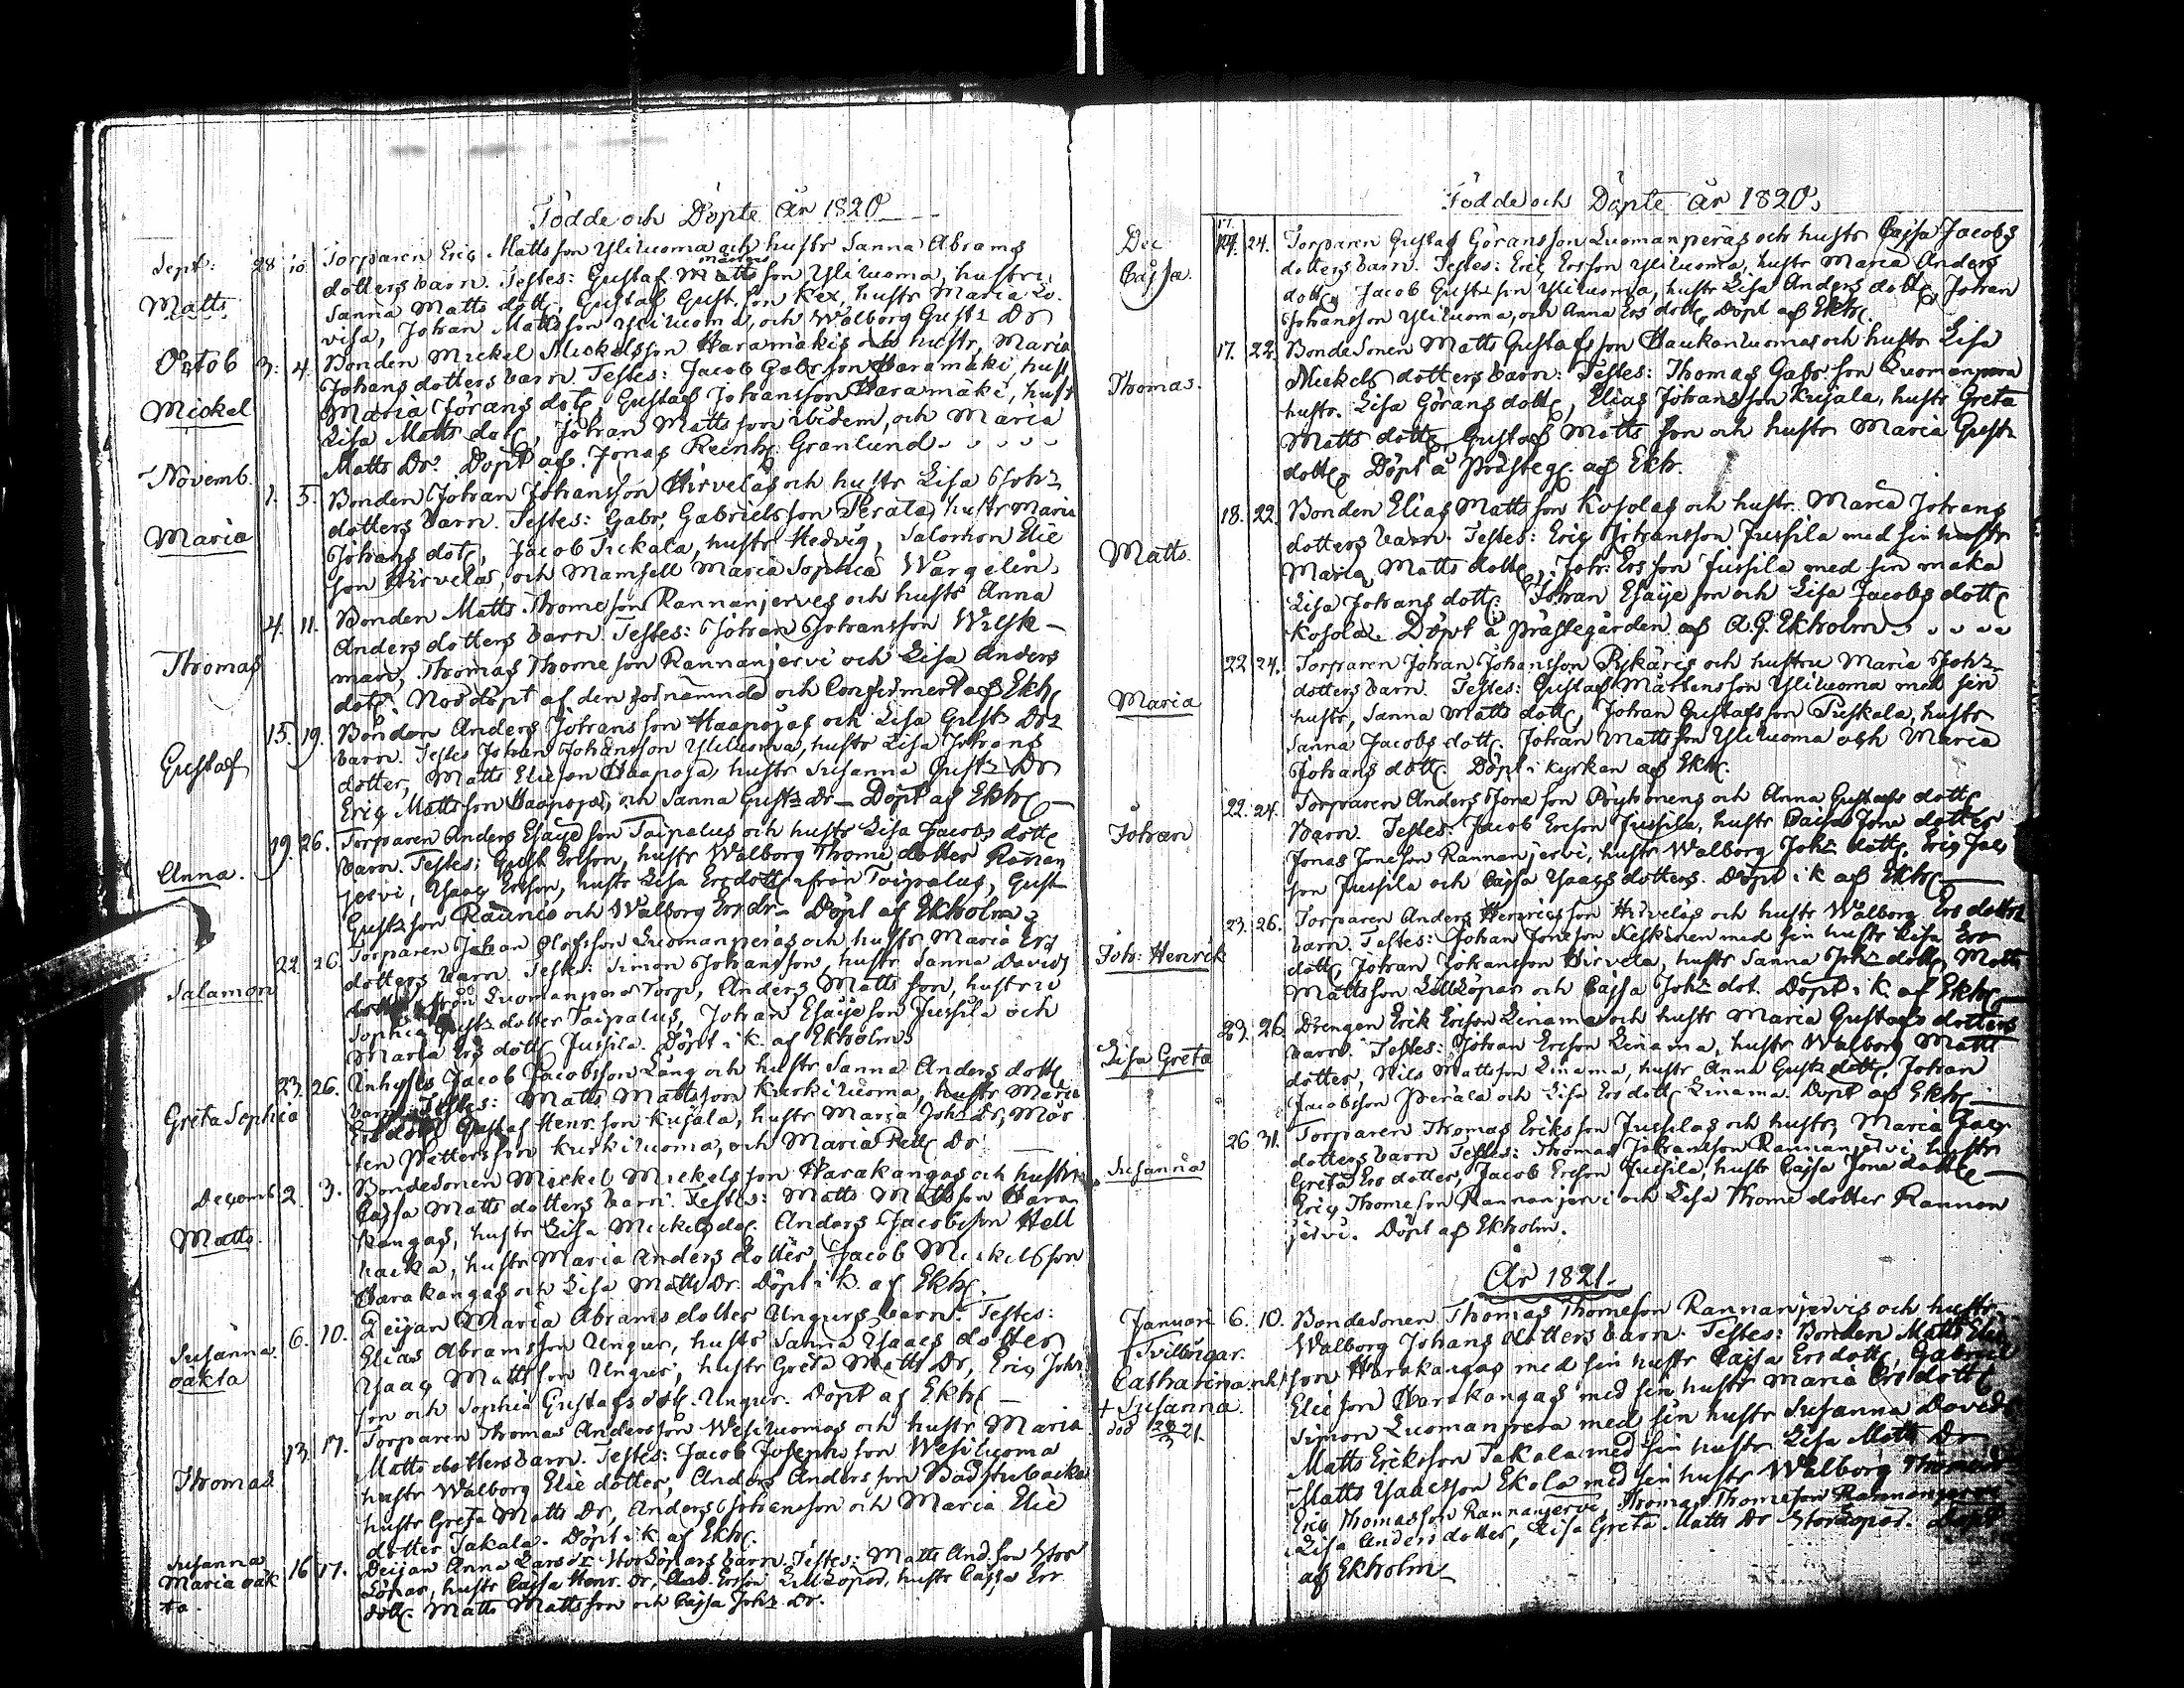 Födde och Döpte År 1820
Sept: 28 10 Torparen Eric Mattsson Yliluoma och hustr Sanna Abrams
dotters barn. Testes: Gustaf Mattsson Yliluoma, hustru
mårtens
Matts
Sanna Matts dottr, Gustaf Gust. son Kex, hustr Maria Lo-
visa, Johan Mattsson Yliluoma, och Walborg Gusts Dr
Octob 3. 4. Bonden Mickel Mickelsson Haramäkis och hustr, Maria
Johans dotters barn. Testes: Jacob Gabrson Haramäki, hust
Mickel
Maria Görans dotr, Gustaf Johansson Haramäki, hustr
Lisa Matts dotr, Johan Mattsson ibidem, och Maria
Matts Dr. Döpt af Jonas Reinh. Granlund
Novemb.
1. 5. Bonden Johan Johansson Hirvelas och hustr Lisa Johs
dotters barn. Testes: Gabr. Gabrielsson Perälä, hustr Maria
Maria
Johans dotr, Jacob Tickala, hustr Hedvig, Salomon Elie
son Hirvelas, och Mamsell Maria Sophia Wargelin.
4. 11. Bonden Matts Thomeson Rannanjerves och hustr Anna
Anders dotters barn. Testes: Johan Johansson Wilsk-
Thomas
man, Thomas Thomeson Rannanjervi och Lisa Anders
dotr. Nöddöpt af den förnämnda och Confirmert af Ekh.
15. 19. Bonden Anders Johansson Haapojas och Lisa Gusts Drs
barn. Testes Johan Johansson Yliluoma, hustr Lisa Johans
Gustaf
dotter, Matts Elieson Haapoja, hustr Susanna Gusts Dr
Eric Mattsson Haapoja, och Sanna Gusts Dr - Döpt af Ekh.
19. 26. Torparen Anders Esaijeson Taipalus och hustr Lisa Jacobs dottr
barn. Testes: Gust Ericson, hustr Walborg Thome dotter Rannan
Anna.
jervi, Ysaac Ericson, hustr Lisa Ersdottr från Taipalus, Gust
Gustsson Raunio och Walborg Ersdr - Döpt af Ekholm.
22. 26. Torparen Johan Olofsson Luomanperäs och hustr Maria Ers
dotters barn. Testes: Simon Johansson, hustr Sanna Davids
Salamon
dotter från Luomanperä Torp, Anders Mattsson, hustru
Sophia Gusts dotter Taipalus, Johan Esaijeson Jussila och
Maria Ers dottr Jussila. Döpt i k. af Ekholm
23. 26. Inhyses Jacob Jacobsson Lång och hustr Sanna Anders dottr
barn. Testes: Matts Mattsson Kurkiluoma, hustr Maria
Greta Sophia
Ersdottr Gustaf Henr. son Kujala, hustr Maria Johs Dr, Mår
ten Pettersson Kurkiluoma, och Maria Pett. Dr
Decemb 2. 3. Bondesonen Mickel Mickelsson Harakangas och hustru
Cajsa Matts dotters barn. Testes: Matts Mattsson Hara
Matts
kangas, hustr Lisa Mickelsdot. Anders Jacobsson Hell
backa, hustr Maria Anders dotter, Jacob Mickelsson
Harakangas och Lisa Matts Dr. Döpt i k. af Ekh.
6. 10. Peijan Maria Abrams dotter Ungurs barn. Testes:
Susanna
oäkta
Elias Abramsson Ungur, hustr Sanna Ysaacs dotter
Ysaac Mattsson Ungur, hustr Greta Matts Dr, Eric Johs
son och Sophia Gustafs dott. Ungur. Döpt af Ekh.
13. 17. Torparen Thomas Andersson Wesiluomas och hustr Maria
Matts dotters barn. Testes: Jacob Josephsson Wesiluoma
Thomas
hustr Walborg Elie dotter, Anders Andersson Badstubacka
hustr Greta Matts Dr, Anders Johansson och Maria Elie
dotter Takala. Döpt i k. af Ekh.
Susanna
Maria oäk
ta.
16 17. Peijan Anna Larsdr Storsöpars barn. Testes: Matts And.son Stor
söpar, hustr Cajsa Henr. Dr, And. Ersson Lillsöpar, hustr Cajsa Ers
dott. Matts Mattsson och Cajsa Johs Dr.
Födde och Döpte År 1820.
Dec 17. 24. Torparen Gustaf Göransson Luomanperäs och hustr Cajsa Jacobs
Cajsa.
dotters barn. Testes: Eric Ersson Yliluoma, hustr Maria Anders
dottr, Jacob Gustsson Yliluoma, hustr Lisa Anders dottr, Johan
Johansson Yliluoma, och Anna Ers dottr, Döpt af Ekh.
17. 22. Bondesonen Matts Gustafsson Haukanluomas och hustr Lisa
Thomas.
Mickels dotters barn: Testes: Thomas Gabrsson Luomanperä
hustr. Lisa Görans dottr, Elias Johansson Kujala, hustr Greta
Matts dottr, Gustaf Mattsson och hustr Maria Gusts
dottr. Döpt å Prästeg. af Ekh.
18. 22. Bonden Elias Mattsson Kosolas och hustr. Maria Johans
dotters barn. Testes: Eric Johansson Jussila med sin hustr
Matts.
Maria Matts dottr, Joh: Ersson Jussila med sin maka
Lisa Johans dottr. Johan Esaijeson och Lisa Jacobs dottr
Kosola. Döpt å Prästegården af A. G. Ekholm
22 24. Torparen Johan Johansson Rykäris och hustru Maria Johs
dotters barn. Testes: Gustaf Mårtensson Yliluoma med sin
Maria
hustr, Sanna Matts dottr, Johan Gustafsson Tuskala, hustr
Sanna Jacobs dottr. Johan Mattsson Yliluoma och Maria
Johans dottr. Döpt i kyrkan af Ekh.
22. 24. Torparen Anders Joneson Pöyhönens och Anna Gustafs dottr
barn. Testes: Jacob Ericson Jussila, hustr Cajsa Jona dotter
Johan
Jonas Joneson Rannanjervi, hustr Walborg Johs dottr. Eric Jac
son Jussila och Cajsa Ysaacs dotters. Döpt i k af Ekh.
23. 26. Torparen Anders Henricsson Hirvelas och hustr Walborg Ers dotters
barn. Testes: Johan Joneson Keskinen med sin hustr Lisa Ers
Joh: Henrik
dottr, Johan Johansson Hirvela, hustr Sanna Johs dottr, Matts
Mattsson Lillsöpar och Cajsa Johs dot. Döpt i k. af Ekh.
23. 26 Drengen Erik Ericson Linama och hustr Maria Gustafs dotters
barn. Testes: Johan Ericson Linama, hustr Walborg Matts
Lisa Greta
dotter, Nils Mattsson Linama, hustr Anna Gusts dottr. Johan
Jacobsson Perälä och Lisa Ersdottr Linama. Döpt af Ekh.
26 31. Torparen Thomas Eriksson Jussilas och hustr, Maria Jacs
dotters barn Testes: Thomas Johansson Rannanjervi, hustr
Susanna
Greta Ers dotter, Jacob Ericson Jussila, hustr Cajsa Jona dotter
Eric Thomeson Rannanjervi och Lisa Thome dotter Rannan
jervi. Döpt af Ekholm.
År 1821.
Januari 6. 10. Bondesonen Thomas Thomeson Rannanjervis och hustr
Tvillingar.
Walborg Johans dotters barn. Testes: Bonden Matts Elie
Catharina och
son Harakangas med sin hustr Cajsa Ersdottr, Gabriel
+ Susanna.
Elieson Harakangas med sin hustr Maria Ersdottr
död 28/3 21.
Simon Luomanperä med sin hustr Susanna Davids
Matts Eriksson Takala med sin hustr Lisa Matts Dr
Matts Ysaacsson Ekola med sin hustr Walborg
Eric Thomasson Rannanjervi, Thomas Thomeson Rannanjervi
Lisa Anders dotter, Lisa Greta Matts Dr Storsöpar. Döpt
af Ekholm